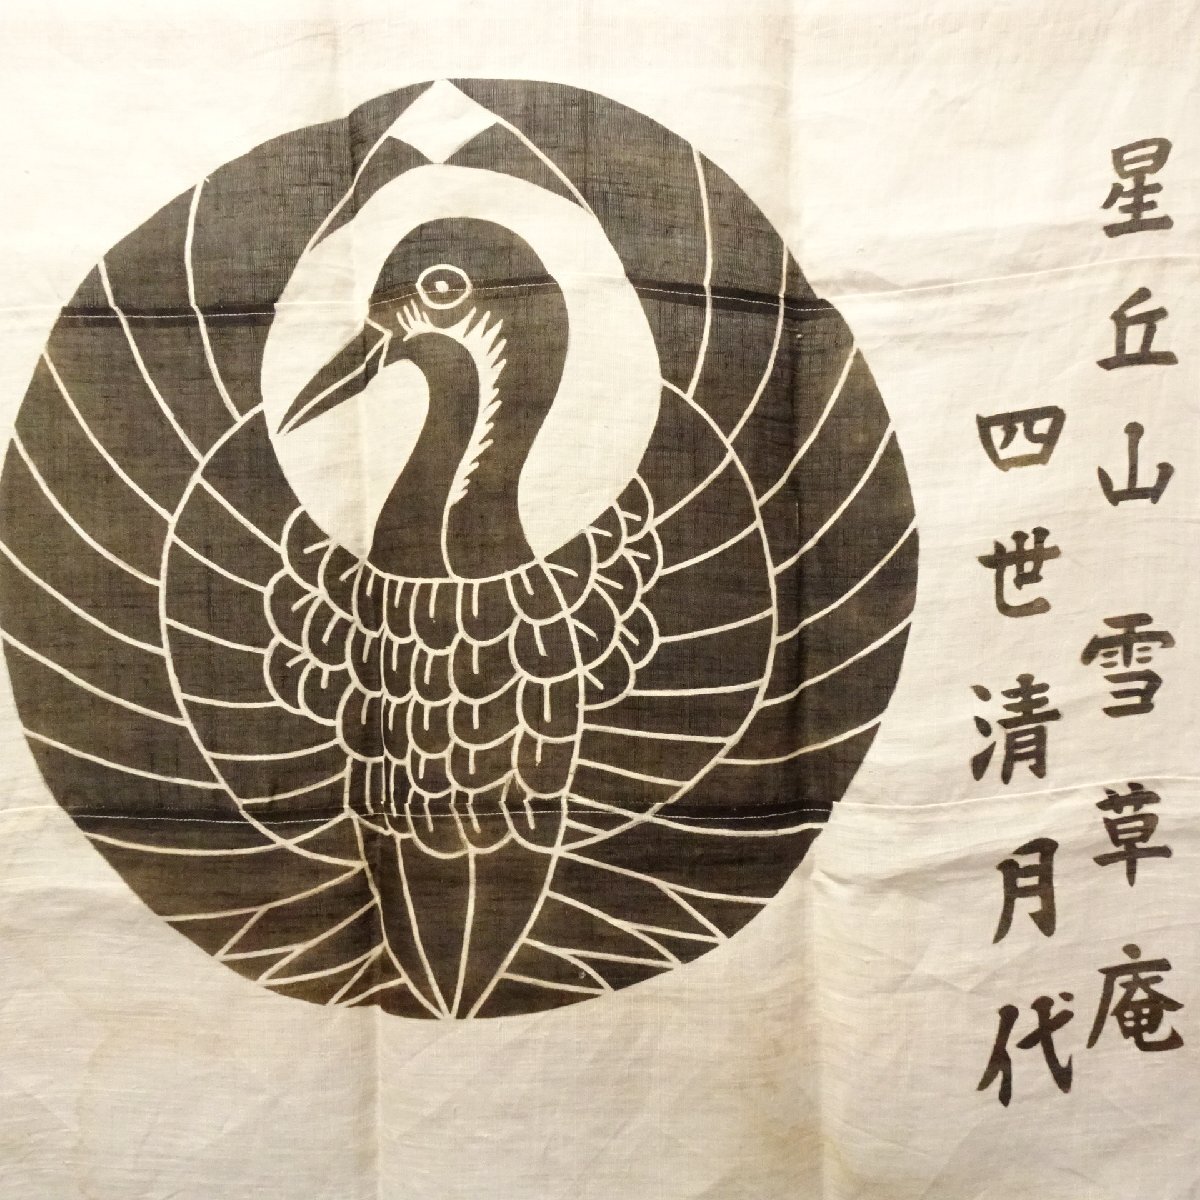 星丘山雪草庵
四世清月代